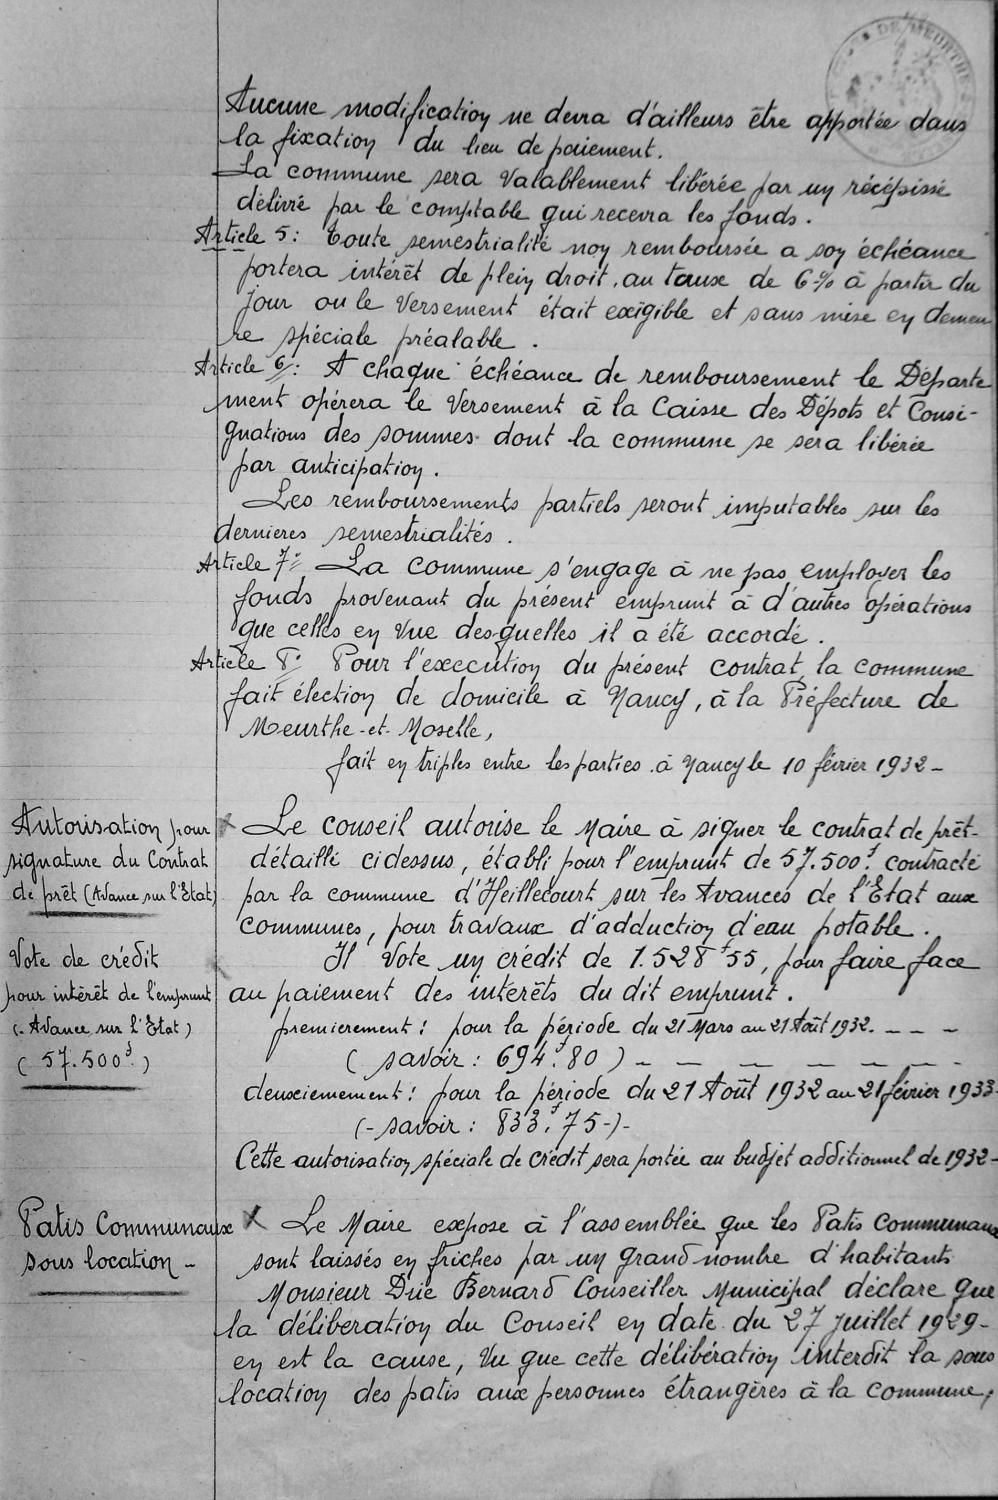 DE MEURTHE
Aucune modification ne devra d'ailleurs être apportée dans
la fixation du lieu de paiement.
La commune sera valablement libérée par un récépissé
délivré par le comptable qui recevra les fonds.
Article 5: toute semestrialité non remboursée a son échéance
portera intérêt de plein droit, au taux de 6% à partir du
jour ou le versement était exigible et sans mise en demeu
re spéciale préalable.
Article 6: A chaque échéance de remboursement le Départe
ment opérera le versement à la Caisse des Dépots et Consi-
gnations des sommes dont la commune se sera libérée
par anticipation.
Les remboursements partiels seront imputables sur les
dernieres semestrialités.
Article 7: La commune s'engage à ne pas employer les
fonds provenant du présent emprunt à d'autres opérations
que celles en vue desquelles il a été accordé.
Article 8: Pour l'execution du présent contrat, la commune
fait élection de domicile à Nancy, à la Préfecture de
Meurthe-et-Moselle,
fait en triples entre les parties à Nancy le 10 février 1932-
Autorisation pour
signature du Contrat
de prêt (Avance sur l'Etat)
Le conseil autorise le Maire à signer le contrat de prêt-
détaillé cidessus, établi pour l'emprunt de 57.500f contracté
par la commune d'Heillecourt sur les Avances de l'Etat aux
communes, pour travaux d'adduction d'eau potable.
Vote de crédit
pour intérêt de l'emprunt
(-Avance sur l'Etat)
(57.500f)
Il vote un crédit de 1.528f55, pour faire face
au paiement des interêts du dit emprunt.
premierement: pour la période du 21 Mars au 21 Août 1932. - - -
(savoir: 694f.80) - - - - - - -
deuxiemement: pour la période du 21 Août 1932 au 21 février 1933-
(-savoir: 833f.75-)-
Cette autorisation spéciale de crédit sera portée au budjet additionnel de 1932-
Patis Communaux
sous location -
Le Maire expose à l'assemblée que les Patis Communaux
sont laissés en friches par un grand nombre d'habitants
Monsieur Drie Bernard Conseiller Municipal déclare que
la déliberation du Conseil en date du 27 juillet 1929-
en est la cause, vu que cette délibération interdit la sous
location des patis aux personnes étrangères à la commune,